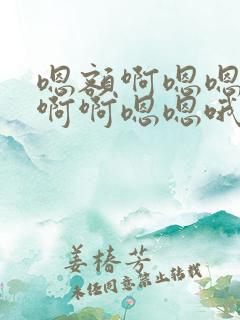 嗯额啊嗯嗯
啊啊嗯嗯哦
姜椿芳
未经同意禁止转载